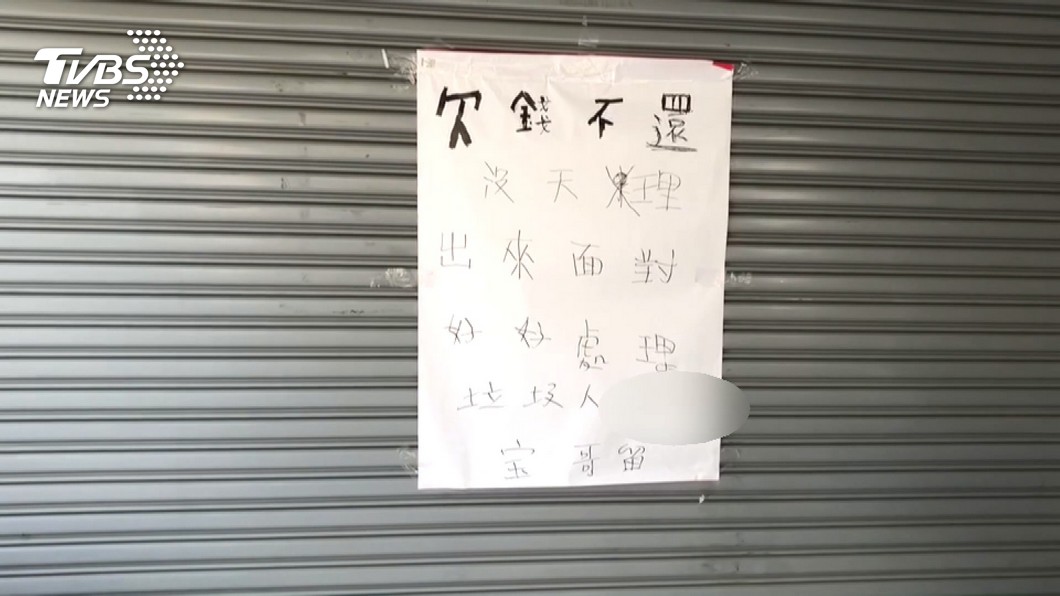 TVBS
NEWS
欠錢不還
沒天理
出來面對
好好處理
垃圾人
宝哥留